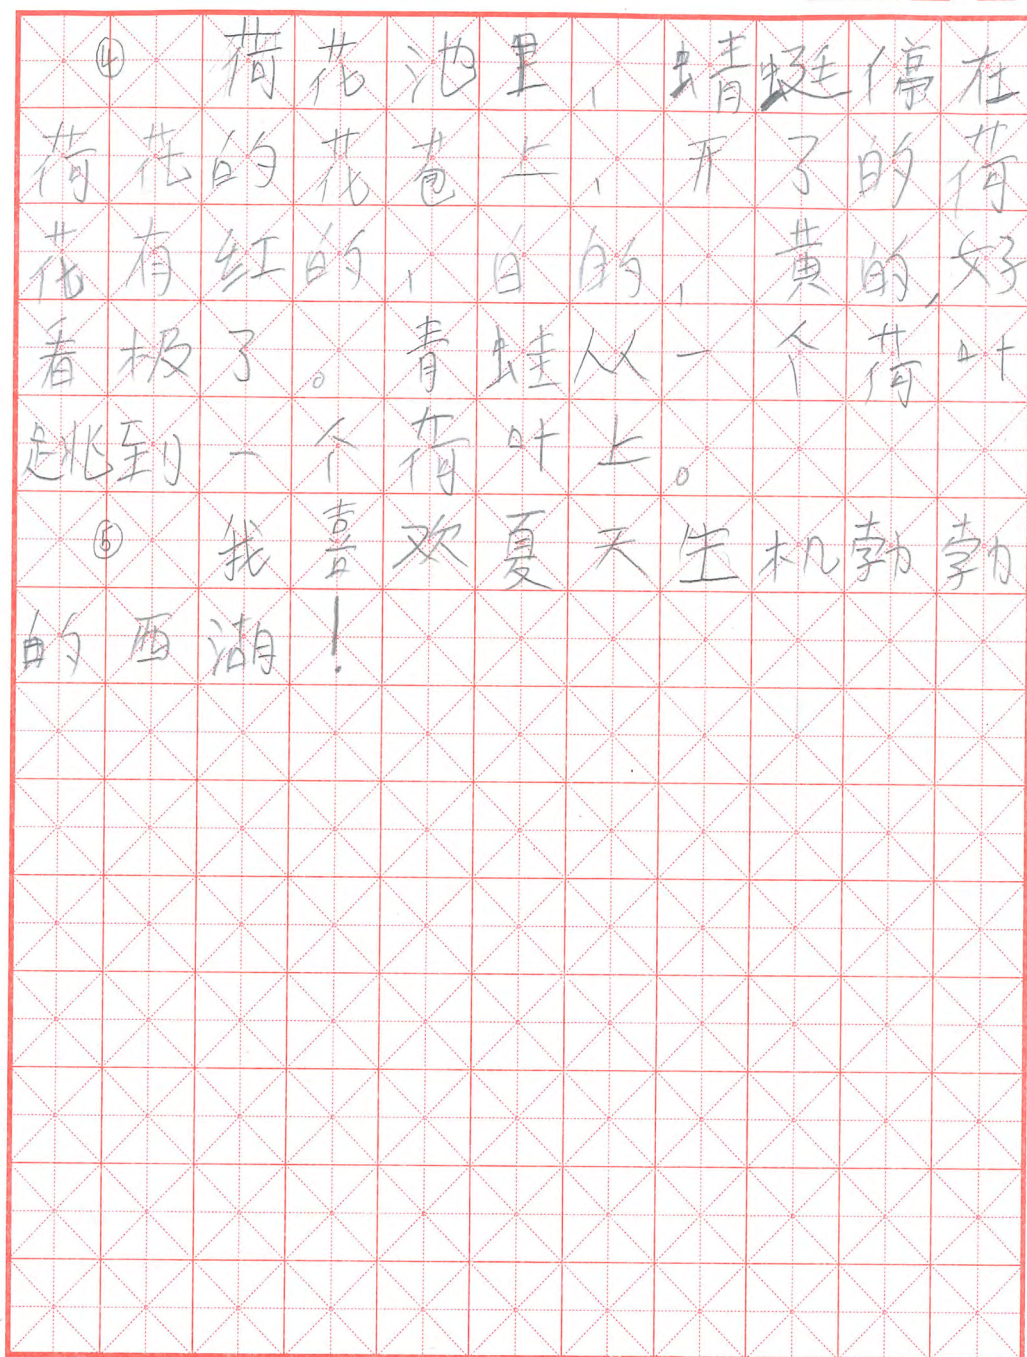 ④ 荷花池里，蜻蜓停在
荷花的花苞上，开了的荷
花有红的，白的，黄的,好
看极了。青蛙从一个荷叶
跳到一个荷叶上。
⑤ 我喜欢夏天生机勃勃
的西湖！